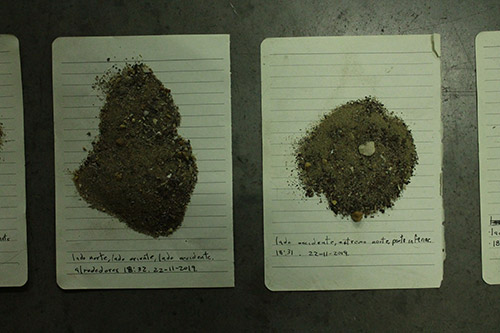 lado norte, lado oriente, lado occidente.
alrededores 18:32. 22-11-2019.
lado occidente, extremo norte, parte inferior
18:31. 22-11-2019.